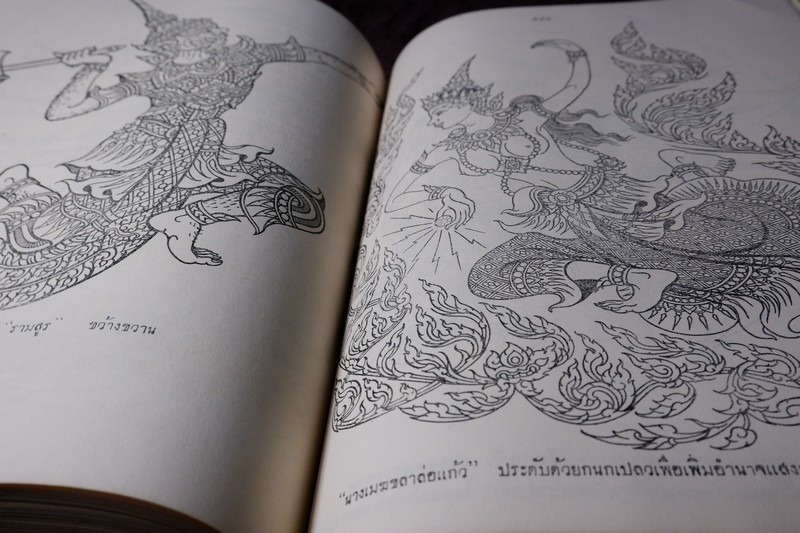 "รามสูร" ขว้างขวาน
"นางเมฆขลาล่อแก้ว" ประดับด้วยกนกเปลวเพื่อเพิ่มอำนาจแสง